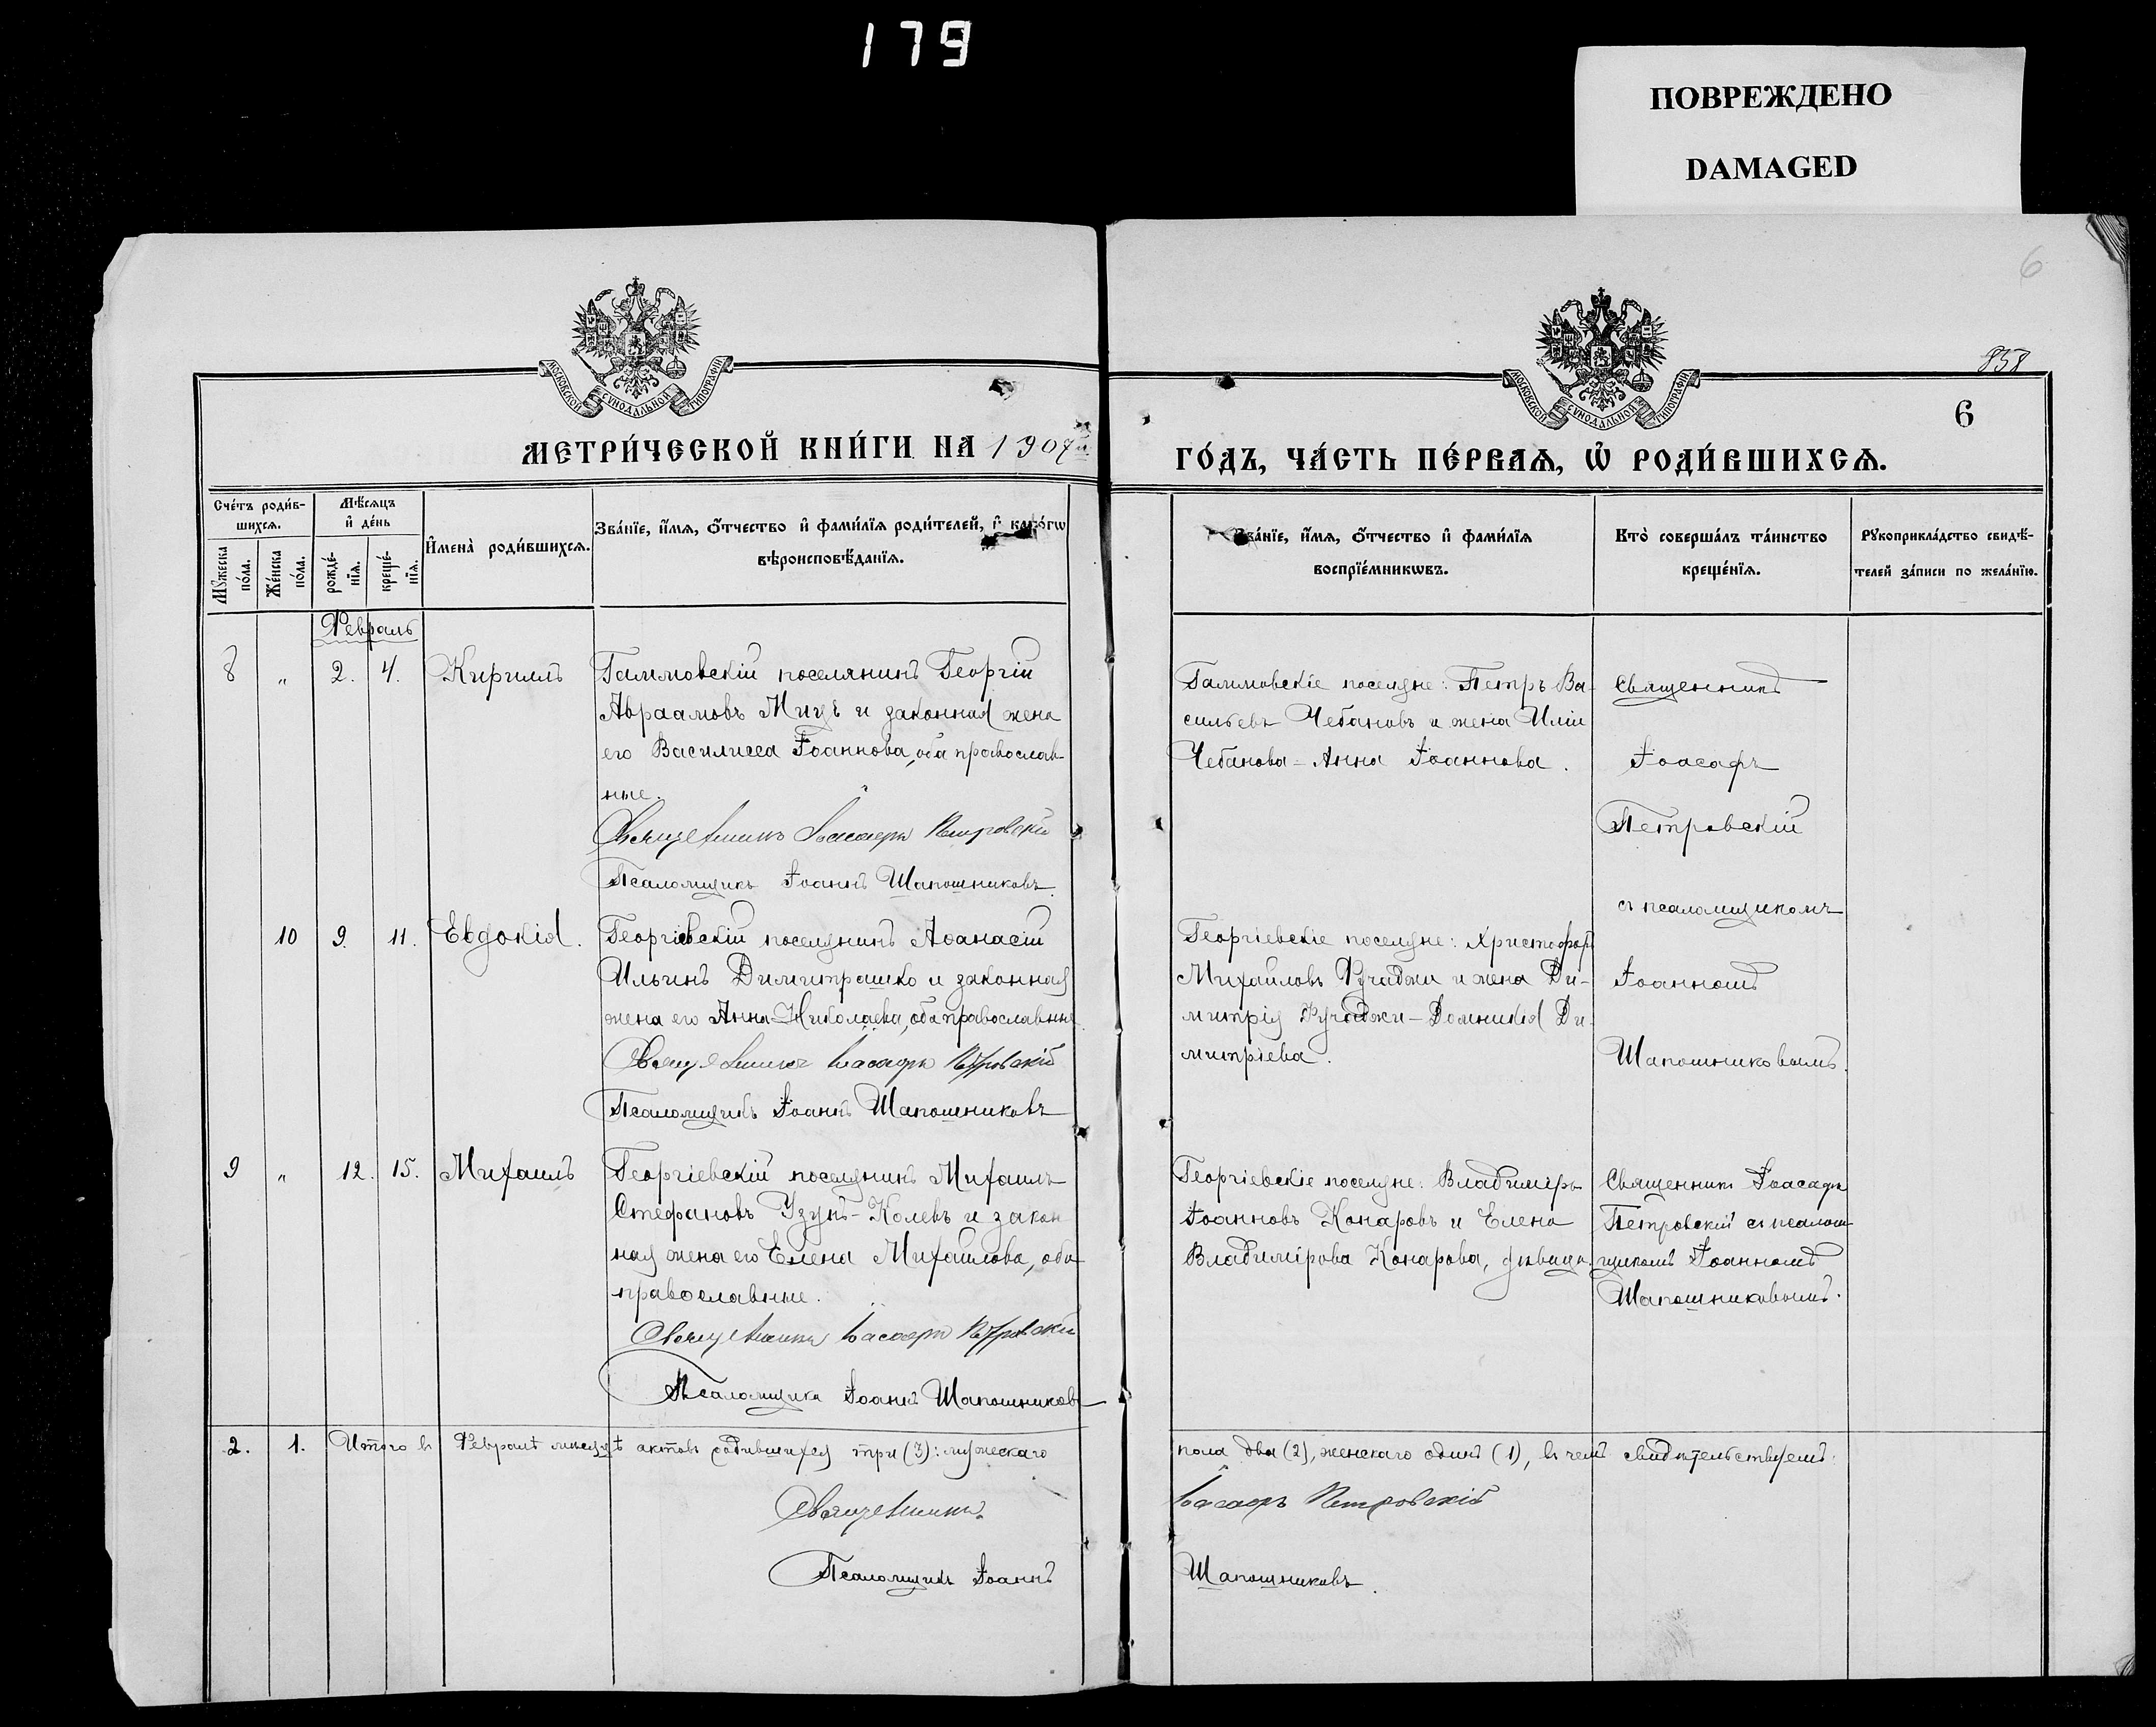 179
ПОВРЕЖДЕНО
DAMAGED
6
858
6
МОСКОВСКОЙ СУНОДАЛЬНОЙ ТИПОГРАФІИ
МОСКОВСКОЙ СУНОДАЛЬНОЙ ТИПОГРАФІИ
МЕТРИ́ЧЕСКОЙ КНИ́ГИ НА 1907й
ГО́ДЪ, ЧА́СТЬ ПЕ́РВАѦ, Ѡ҆ РОДИ́ВШИХСѦ.
Сче́тъ роди́в-
шихсѧ.
Мꙋ́жеска по́ла.
Же́нска по́ла.
Мѣ́сѧцъ
и҆ де́нь
рожде́-нїѧ.
креще́-нїѧ.
И҆мена̀ роди́вшихсѧ.
Зва́нїе, и҆́мѧ, ѻ҆́тчество и҆ фами́лїѧ роди́телей, и҆ како́гѡ
вѣроисповѣ́данїѧ.
Зва́нїе, и҆́мѧ, ѻ҆́тчество и҆ фами́лїѧ
воспрїе́мникѡвъ.
Кто̀ соверша́лъ та́инство
креще́нїѧ.
Рꙋкоприкла́дство свидѣ́-
телей за́писи по жела́нїю.
Февраль
8 „ 2. 4. Кириллъ
Галмовскій поселянинъ Георгій
Авраамовъ Мицъ и законная жена
его Василисса Іоаннова, оба православ-
ные.
Священникъ Іоасафъ Петровскій
Псаломщикъ Іоаннъ Шапошниковъ.
Галмовскіе поселяне: Петръ Ва-
сильевъ Чебановъ и жена Иліи
Чебанова - Анна Іоаннова.
Священникъ
Іоасафъ
Петровскій
съ псаломщикомъ
Іоанномъ
Шапошниковымъ.
10 9. 11. Евдокія.
Георгіевскій поселянинъ Аѳанасій
Ильинъ Димитрашко и законная
жена его Анна Николаева, оба православные.
Священникъ Іоасафъ Петровскій
Псаломщикъ Іоаннъ Шапошниковъ
Георгіевскіе поселяне: Христофоръ
Михайловъ Фучаджи и жена Ди-
митрія Фучаджи - Домникія Ди-
митріева.
9 „ 12. 15. Михаилъ
Георгіевскій поселянинъ Михаилъ
Стефановъ Узунъ-Колевъ и закон-
ная жена его Елена Михайлова, оба
православные.
Священникъ Іоасафъ Петровскій
Псаломщикъ Іоаннъ Шапошниковъ
Георгіевскіе поселяне: Владиміръ
Іоанновъ Конаровъ и Елена
Владимірова Конарова, дѣвица.
Священникъ Іоасафъ
Петровскій съ псалом-
щикомъ Іоанномъ
Шапошниковымъ.
2. 1. Итого въ Февралѣ мѣсяцѣ актовъ родившихся три (3): мужескаго пола два (2), женскаго одинъ (1), въ чемъ свидѣтельствуемъ:
Священникъ Іоасафъ Петровскій
Псаломщикъ Іоаннъ Шапошниковъ.